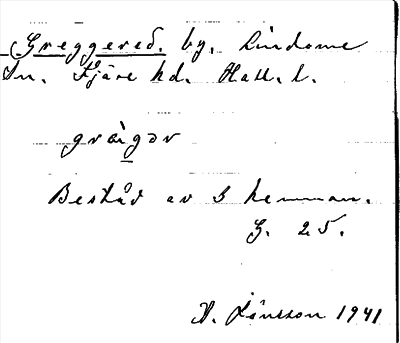 Greggered. by. Lindome
Sn. Fjäre hd. Hall. l.
grægər
Består av 3 hemman.
G. 25.
H. Jönsson 1941